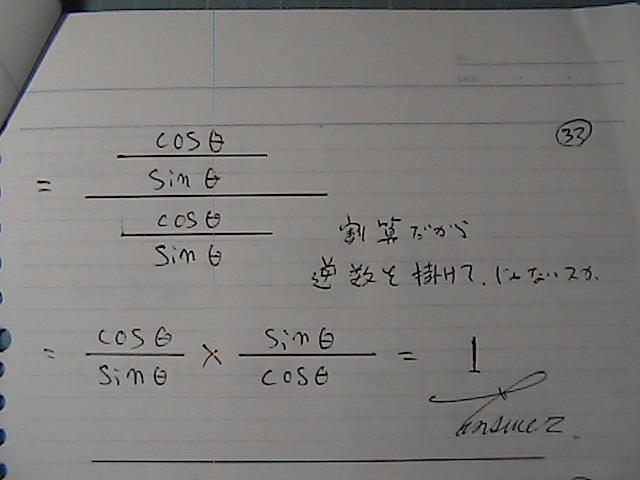 ㉜
= (cosθ/sinθ)/(cosθ/sinθ)
割算だから
逆数を掛けて、じゃないスか.
= cosθ/sinθ × sinθ/cosθ = 1
Answer.